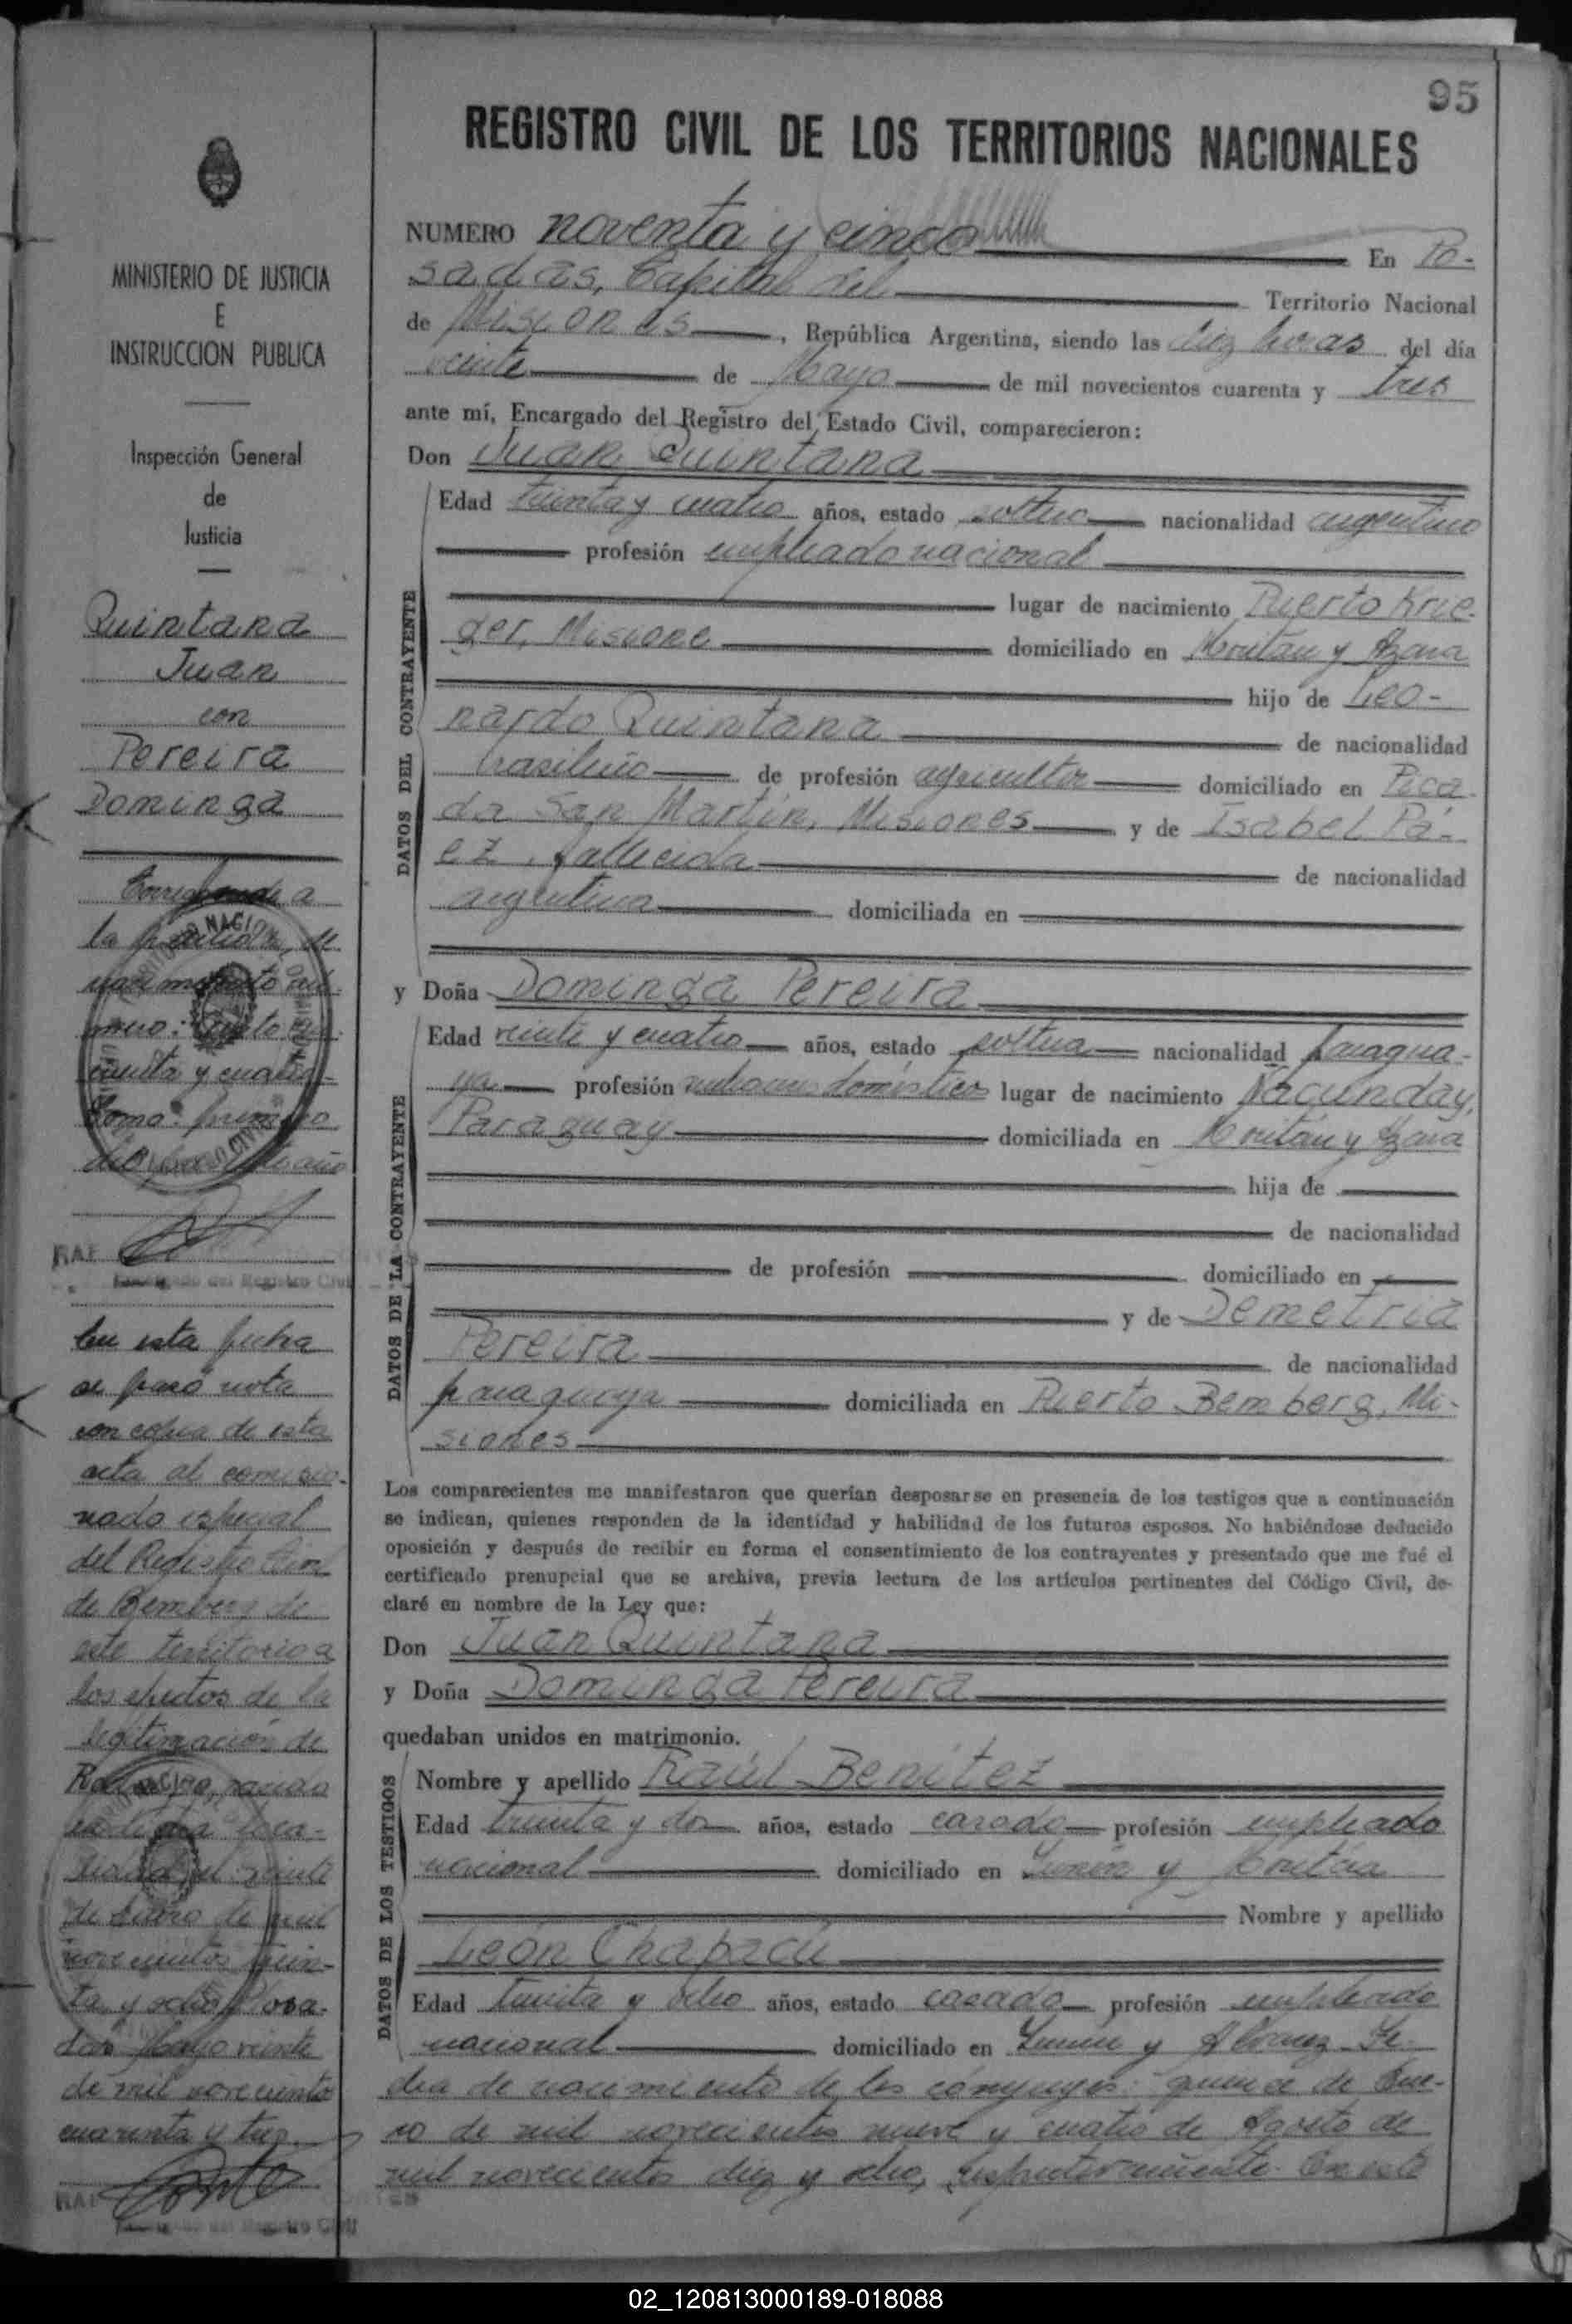 95
REGISTRO CIVIL DE LOS TERRITORIOS NACIONALES
NUMERO noventa y cinco En Po-
sadas, Capital del Territorio Nacional
de Misiones, República Argentina, siendo las diez horas del día
veinte de Mayo de mil novecientos cuarenta y tres
ante mí, Encargado del Registro del Estado Civil, comparecieron:
Don Juan Quintana
DATOS DEL CONTRAYENTE
Edad treinta y cuatro años, estado soltero nacionalidad argentino
profesión empleado nacional
lugar de nacimiento Puerto Krie-
ger, Misione domiciliado en y Azara
hijo de Leo-
nardo Quintana de nacionalidad
brasileño de profesión agricultor domiciliado en Pica-
da San Martín, Misiones y de Isabel Pá-
ez, fallecida de nacionalidad
argentina domiciliada en
y Doña Dominga Pereira
DATOS DE LA CONTRAYENTE
Edad veinte y cuatro años, estado soltera nacionalidad paragua-
ya profesión domésticos lugar de nacimiento Ñacunday,
Paraguay domiciliada en y Azara
hija de
de nacionalidad
de profesión domiciliado en
y de Demetria
Pereira de nacionalidad
paraguaya domiciliada en Puerto Bemberg, Mi-
siones
Los comparecientes me manifestaron que querían desposarse en presencia de los testigos que a continuación
se indican, quienes responden de la identidad y habilidad de los futuros esposos. No habiéndose deducido
oposición y después de recibir en forma el consentimiento de los contrayentes y presentado que me fué el
certificado prenupcial que se archiva, previa lectura de los artículos pertinentes del Código Civil, de-
claré en nombre de la Ley que:
Don Juan Quintana
y Doña Dominga Pereira
quedaban unidos en matrimonio.
DATOS DE LOS TESTIGOS
Nombre y apellido Raúl Benítez
Edad treinta y dos años, estado casado profesión empleado
nacional domiciliado en Junín y
Nombre y apellido
León Chapacú
Edad treinta y ocho años, estado casado profesión empleado
nacional domiciliado en Junín y Alvarez Fe-
cha de nacimiento de los cónyuges: quince de Ene-
ro de mil novecientos nueve y cuatro de Agosto de
mil novecientos diez y ocho, respectivamente. En este
MINISTERIO DE JUSTICIA
E
INSTRUCCION PUBLICA
Inspección General
de
Justicia
Quintana
Juan
con
Pereira
Dominga
Corresponde a
la partida de
nacimiento nú-
mero: ciento cin-
cuenta y cuatro
Tomo: primero
año
Encargado del Registro Civil
En esta fecha
se pasó nota
con copia de esta
acta al comisio-
nado especial
del Registro Civil
de Bemberg de
este territorio a
los efectos de la
legitimación de
nacido
en dicha loca-
lidad el veinte
de Enero de mil
novecientos trein-
ta y ocho Posa-
das Mayo veinte
de mil novecientos
cuarenta y tres.
Encargado del Registro Civil
02_120813000189-018088